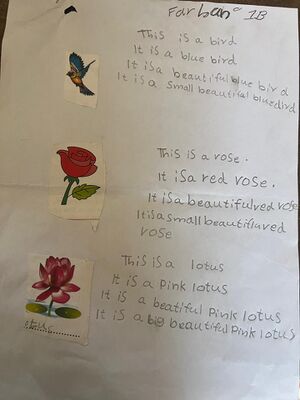 Farhan 1B
This is a bird
It is a blue bird
It is a beautiful blue bird
It is a small beautiful bluebird
This is a rose.
It is a red rose.
It is a beautiful red rose
It is a small beautiful red
rose
This is a lotus
It is a Pink lotus
It is a beatiful Pink lotus
It is a big beautiful Pink lotus